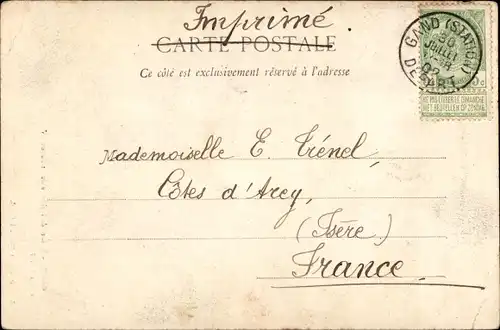 Imprimé
CARTE POSTALE
Ce côté est exclusivement réservé à l'adresse
GAND (STATION)
30
JUILLET
02
DEPART
NE PAS LIVRER LE DIMANCHE
NIET BESTELLEN OP ZONDAG
Mademoiselle E. Trénel,
Côtes d'Arey,
(Isère)
France